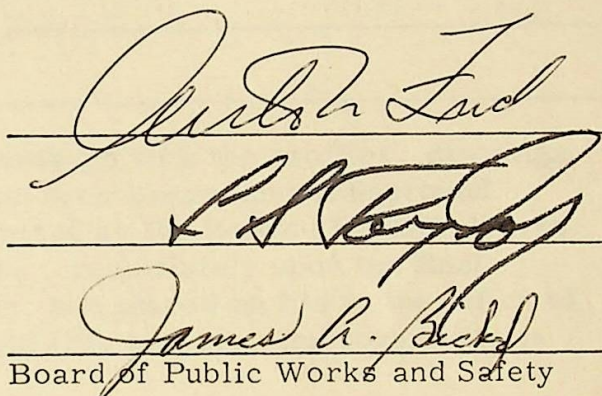 Ford
L S Taylor
James A. Bickel
Board of Public Works and Safety